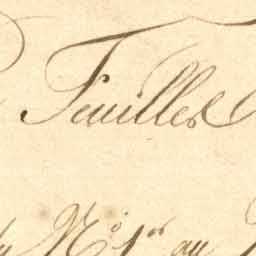 Feuilles
N.º 1.er au